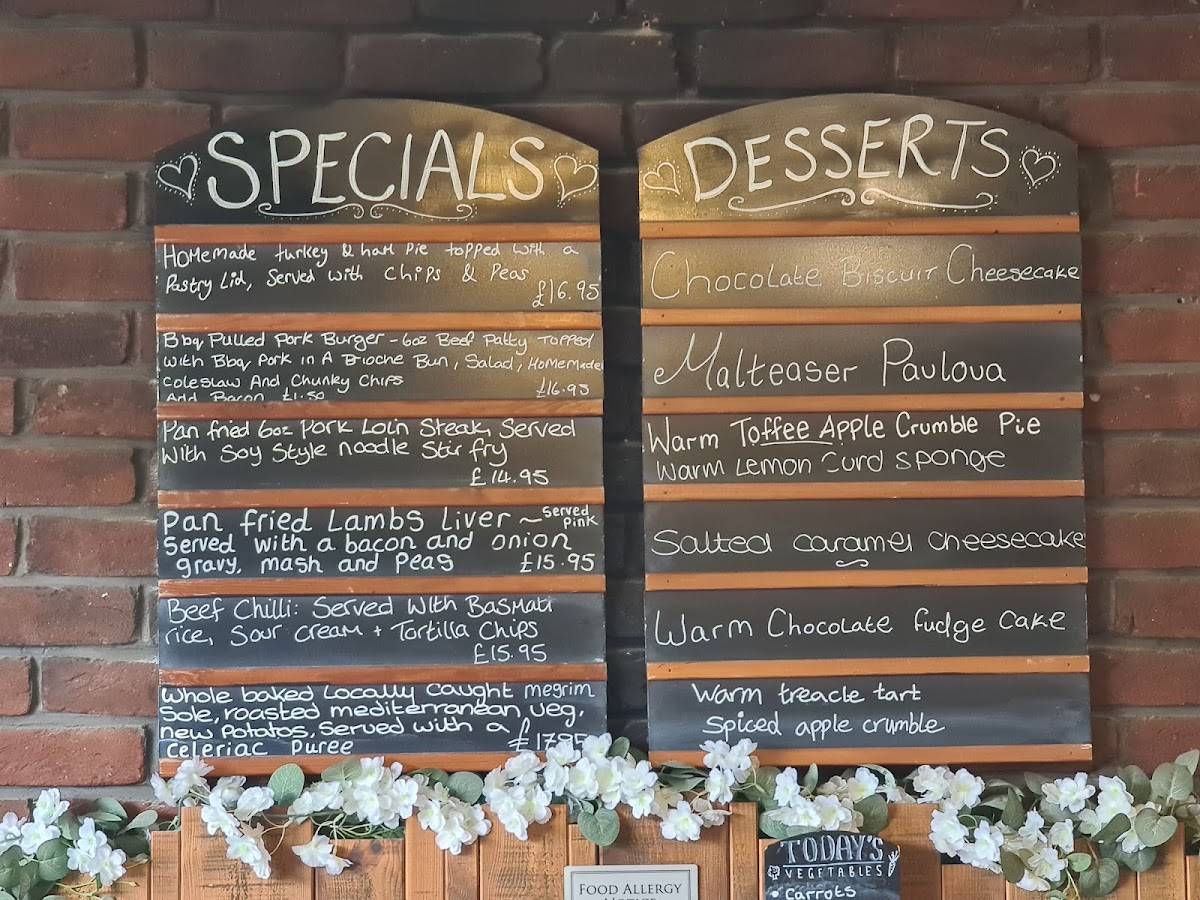 SPECIALS
Homemade turkey & ham Pie topped with a
Pastry Lid, Served with Chips & Peas
£16.95
Bbq Pulled Pork Burger - 6oz Beef Patty Topped
with Bbq Pork in A Brioche Bun, Salad, Homemade
Coleslaw And Chunky Chips
£16.95
Add Bacon £1.50
Pan fried 6oz Pork Loin Steak, Served
With Soy Style noodle Stir fry
£14.95
Pan fried Lambs Liver ~ Served Pink
Served with a bacon and onion
gravy, mash and Peas £15.95
Beef Chilli: Served With Basmati
rice, Sour Cream + Tortilla Chips
£15.95
Whole baked Locally Caught megrim
Sole, roasted mediterranean veg,
new Potatos, Served with a £17.95
Celeriac Puree
DESSERTS
Chocolate Biscuit Cheesecake
Malteaser Pavlova
Warm Toffee Apple Crumble Pie
Warm Lemon Curd Sponge
Salted caramel cheesecake
Warm Chocolate fudge cake
Warm treacle tart
Spiced apple crumble
FOOD ALLERGY
NOTICE
TODAY'S
VEGETABLES
• Carrots